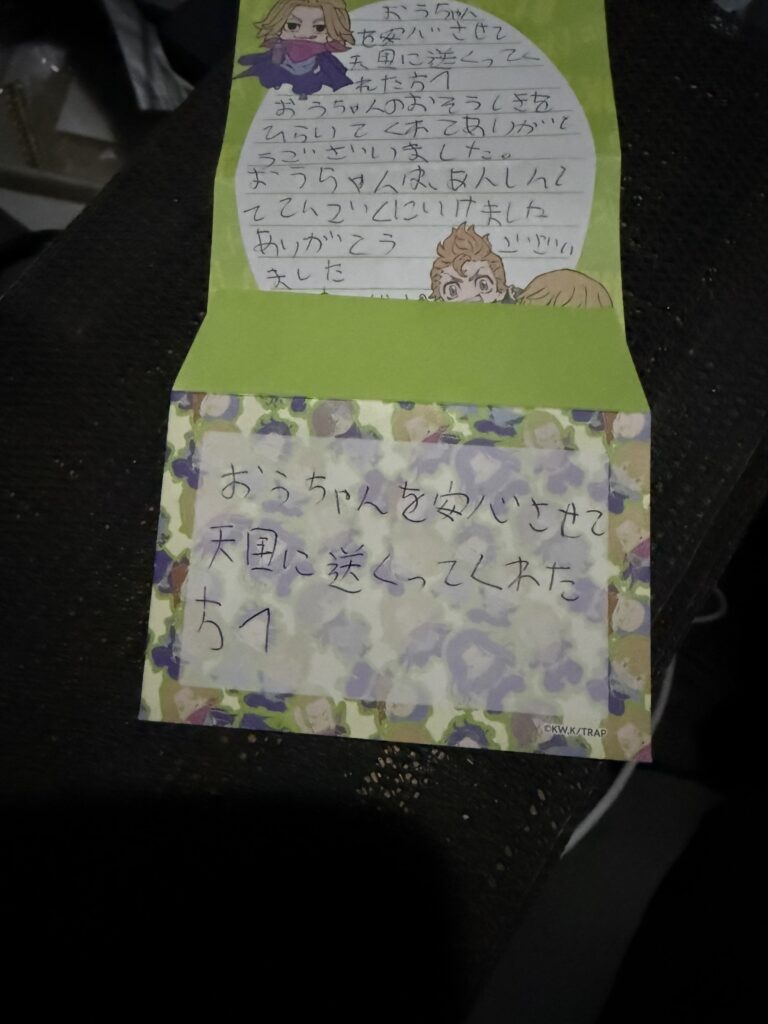 おうちゃん
を安心させて
天国に送くってく
れた方へ
おうちゃんのおそうしきを
ひらいてくれてありがと
うございました。
おうちゃんは、あんしんし
ててんごくにいけました
ありがとう ござい
ました
おうちゃんを安心させて
天国に送くってくれた
方へ
©KW,K/TRAP